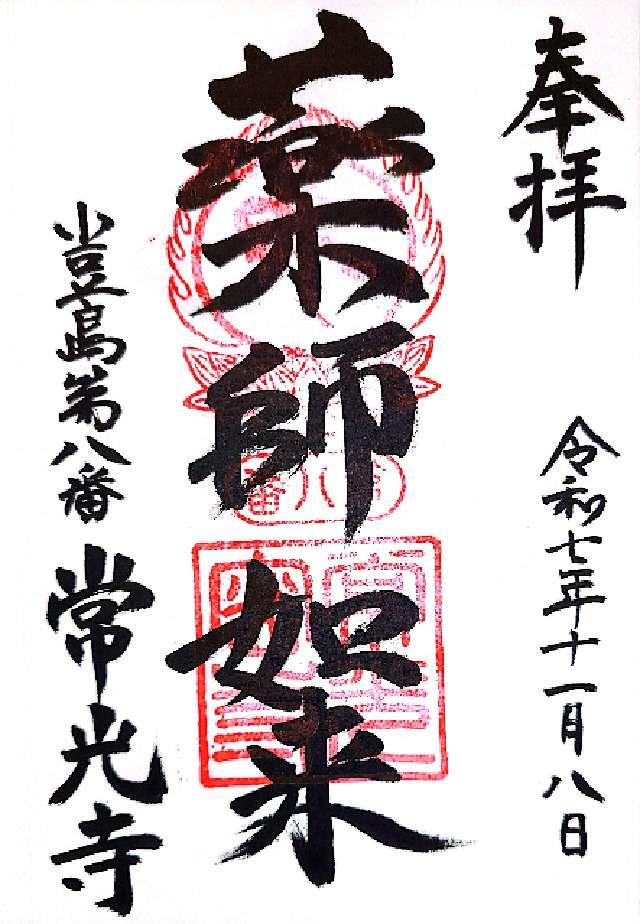 奉拝
令和七年十一月八日
薬師如来
第八番
小豆島第八番
常光寺